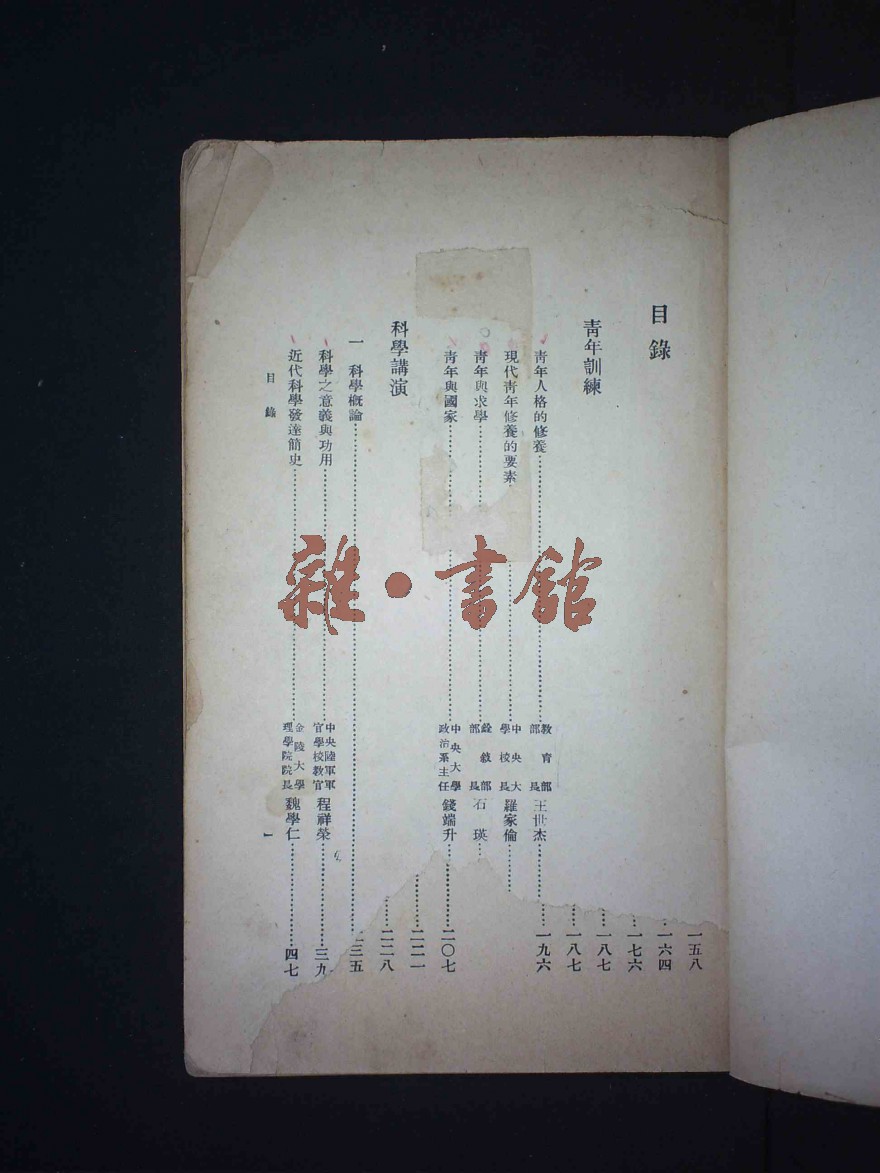 目錄
青年訓練
青年人格的修養…………教育部部長 王世杰…………一九六
現代青年修養的要素…………中央大學校長 羅家倫…………
青年與求學…………銓敘部部長 石瑛…………
青年與國家…………中央大學政治系主任 錢端升…………二〇七
科學講演
一 科學概論…………二三五
科學之意義與功用…………中央陸軍軍官學校教官 程祥榮…………三九
近代科學發達簡史…………金陵大學理學院院長 魏學仁…………四七
目錄
一
一五八
一六四
一七六
一八七
一八七
二二一
二二八
雜·書館